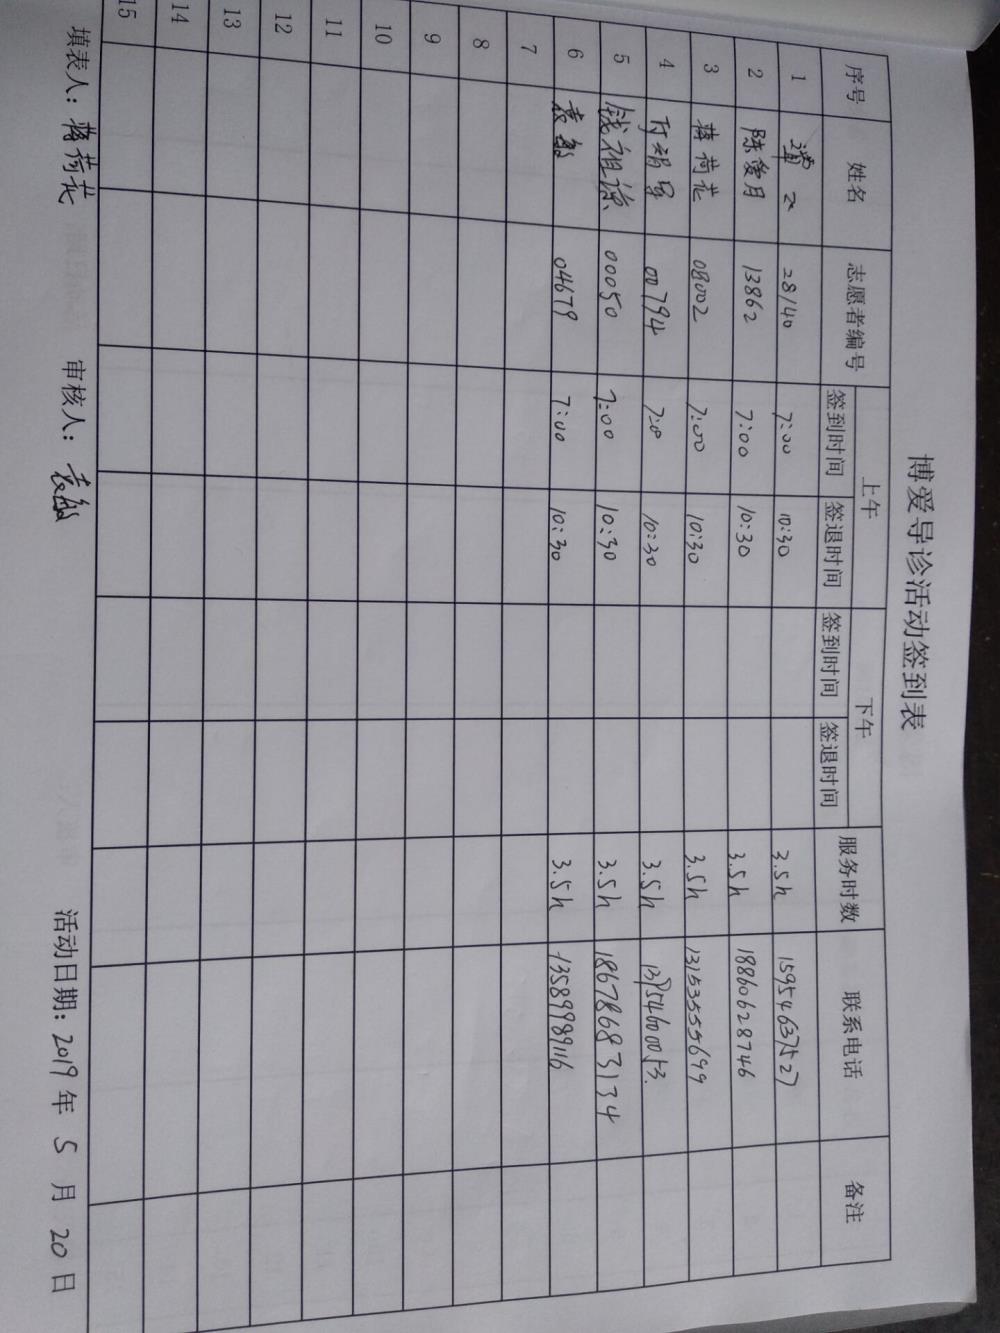 博爱导诊活动签到表
序号 姓名 志愿者编号 上午 下午 服务时数 联系电话 备注
签到时间 签退时间 签到时间 签退时间
1 28140 7:00 10:30 3.5h 15954637527
2 陈爱月 13862 7:00 10:30 3.5h 18860628746
3 蒋荷花 08002 7:00 10:30 3.5h 13153555699
4 00794 7:0 10:30 3.5h
5 钱祖 00050 7:00 10:30 3.5h 18678683134
6 袁敏 04679 7:00 10:30 3.5h 13589989116
7
8
9
10
11
12
13
14
15
填表人：蒋荷花 审核人：袁敏 活动日期：2019年 5 月 20 日